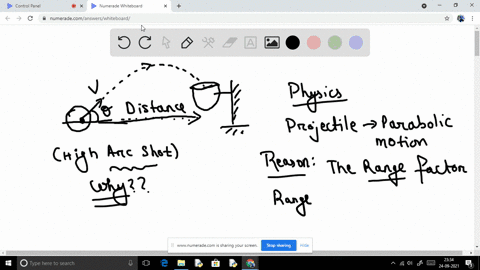 Control Panel
Numerade Whiteboard
numerade.com/answers/whiteboard/
V
θ
Distance
(High Arc Shot)
Why??
Physics
Projectile → Parabolic
motion
Reason: The Range factor
Range
www.numerade.com is sharing your screen.
Stop sharing
Hide
Type here to search
23:34
24-09-2021